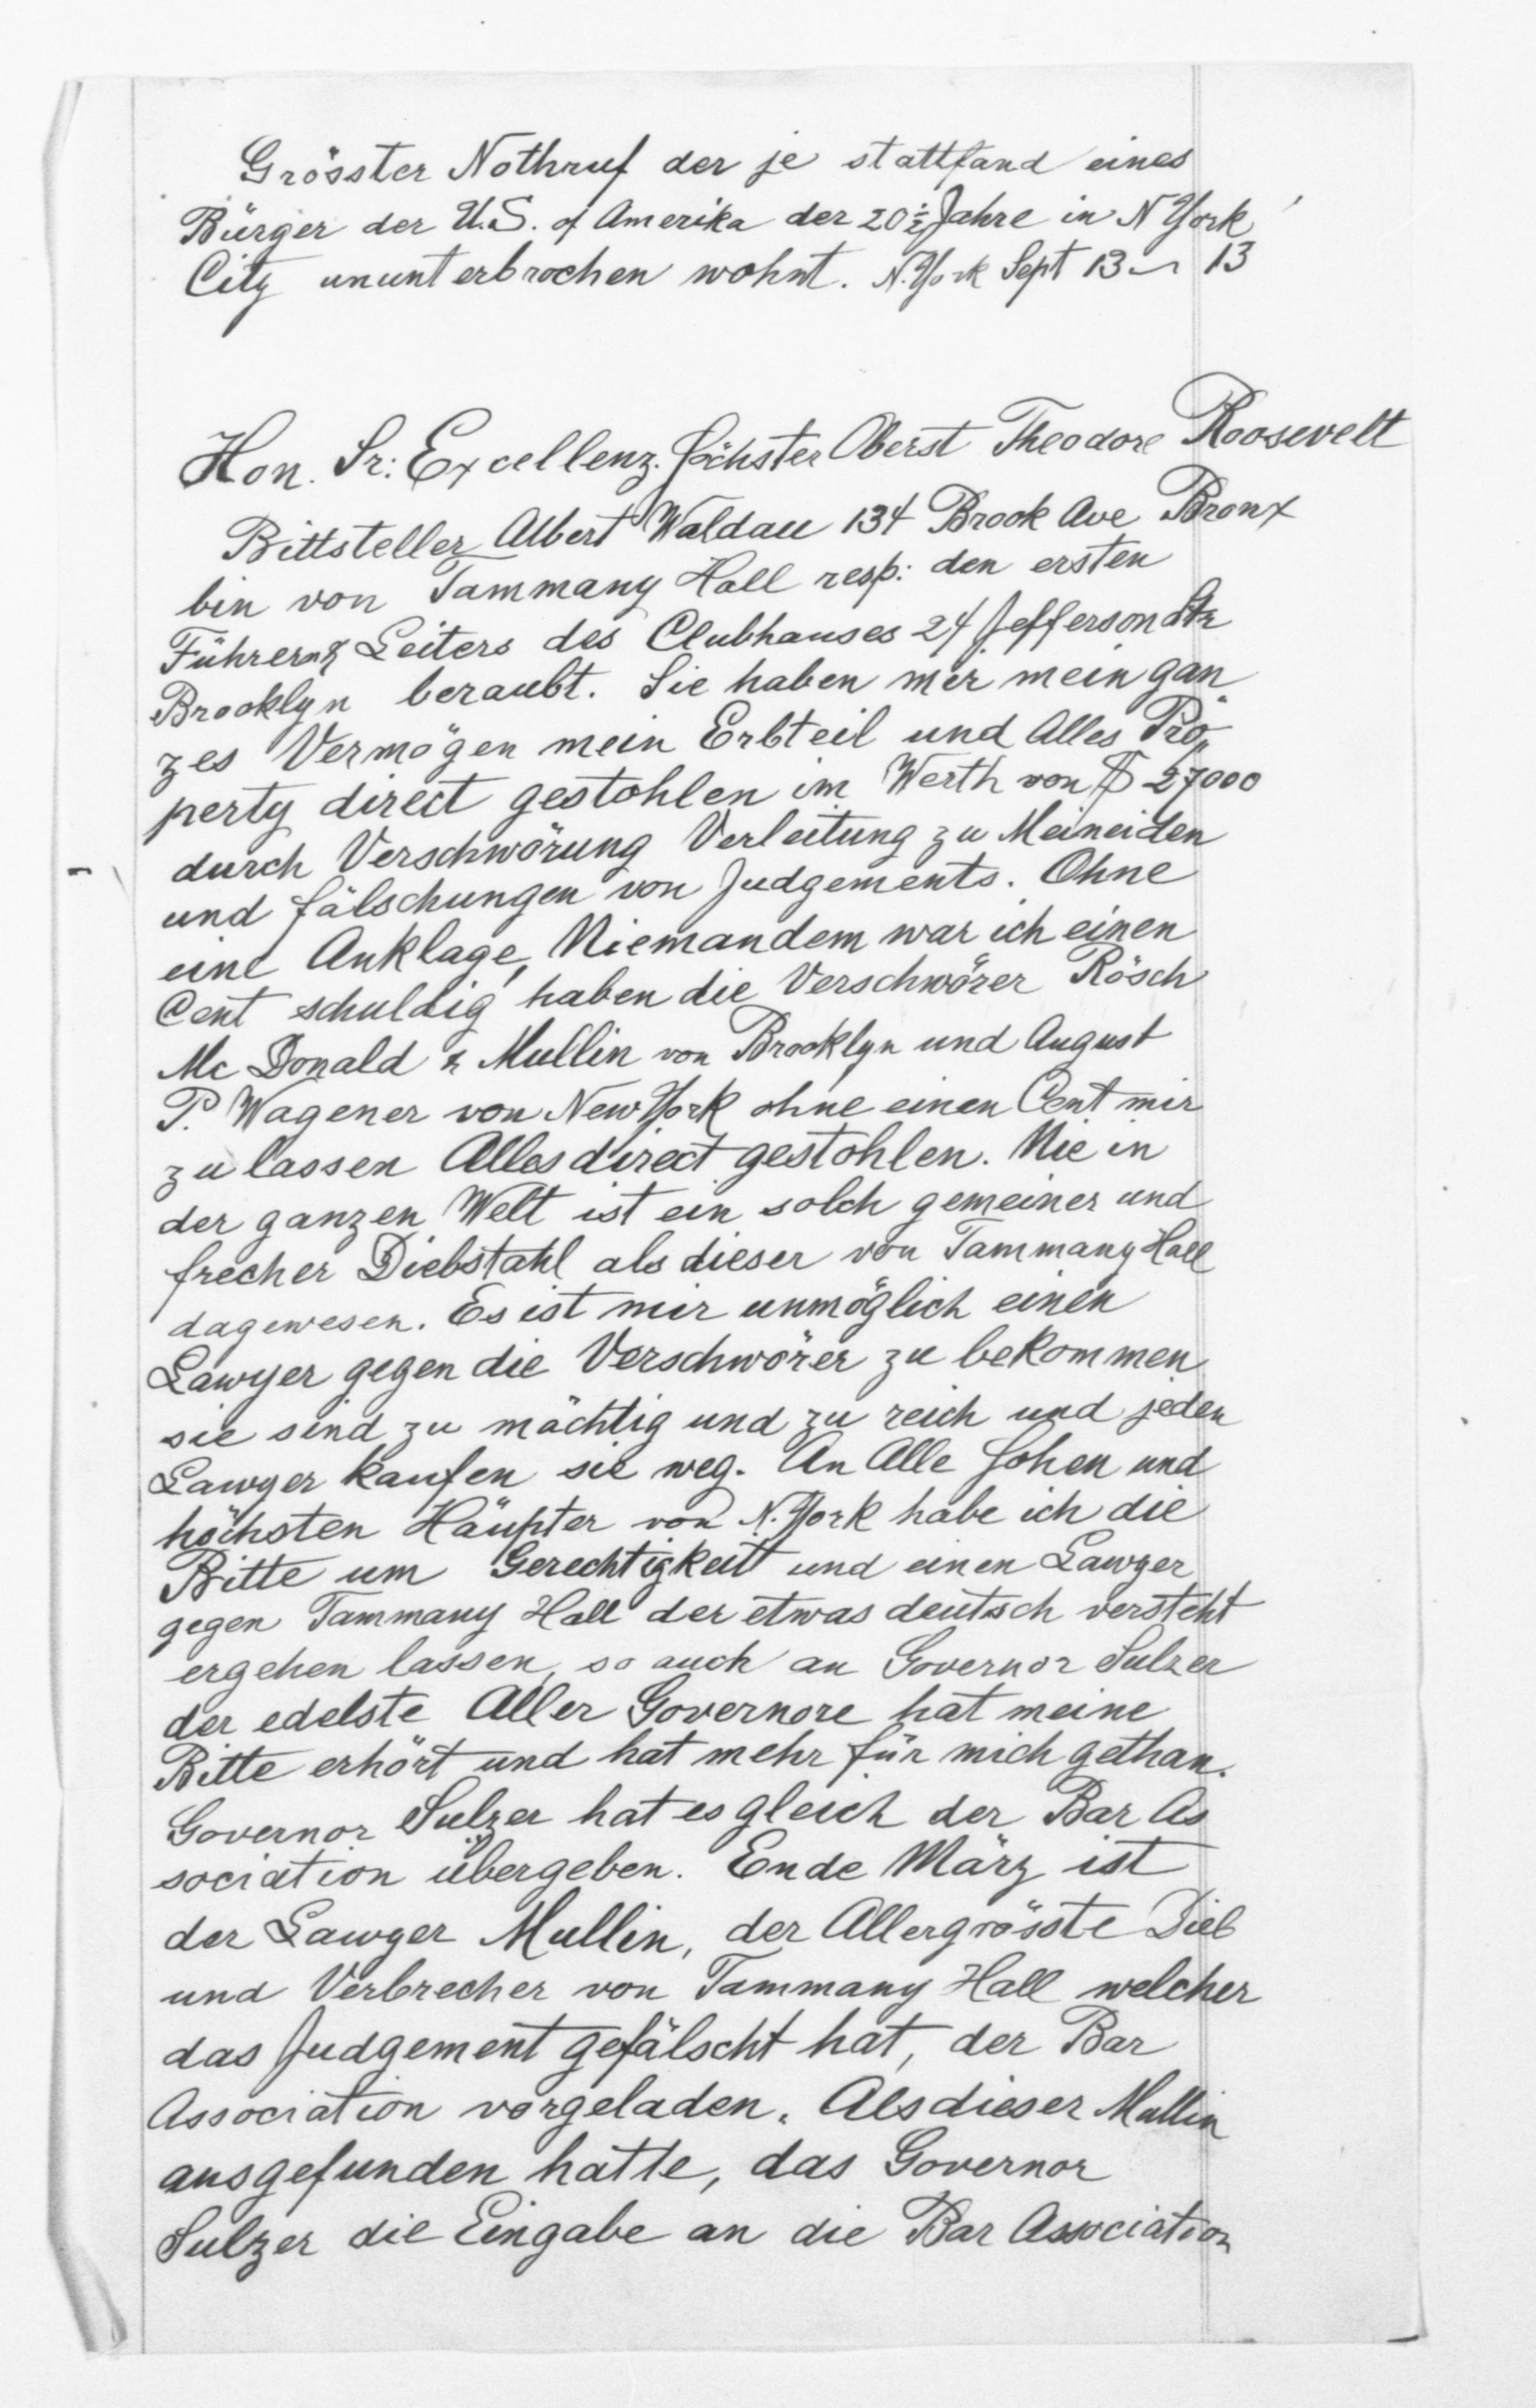 Grösster Nothruf der je stattfand eines
Bürger der U.S. of Amerika der 20 1/2 Jahre in N York
City ununterbrochen wohnt. N. York Sept 13 - 13
Hon. Sr: Excellenz. Höchster Oberst Theodore Roosevelt
Bittsteller Albert Waldau 134 Brook Ave Bronx
bin von Tammany Hall resp: den ersten
Führern & Leiters des Clubhauses 24 Jefferson Str
Brooklyn beraubt. Sie haben mir mein gan
zes Vermögen mein Erbteil und Alles Pro„
perty direct gestohlen im Werth von $ 27000
durch Verschwörung Verleitung zu Meineiden
und fälschungen von Judgements. Ohne
eine Anklage, Niemandem war ich einen
Cent schuldig haben die Verschwörer Rösch
Mc Donald & Mullin von Brooklyn und August
P. Wagener von New York ohne einen Cent mir
zu lassen Alles direct gestohlen. Nie in
der ganzen Welt ist ein solch gemeiner und
frecher Diebstahl als dieser von Tammany Hall
dagewesen. Es ist mir unmöglich einen
Lawyer gegen die Verschwörer zu bekommen
sie sind zu mächtig und zu reich und jeden
Lawyer kaufen sie weg. An Alle Hohen und
höchsten Häupter von N. York habe ich die
Bitte um Gerechtigkeit und einen Lawyer
gegen Tammany Hall der etwas deutsch versteht
ergehen lassen, so auch an Governor Sulzer
der edelste Aller Governore hat meine
Bitte erhört und hat mehr für mich gethan.
Governor Sulzer hat es gleich der Bar As
sociation übergeben. Ende März ist
der Lawyer Mullin, der Allergrösste Dieb
und Verbrecher von Tammany Hall welcher
das Judgement gefälscht hat, der Bar
Association vorgeladen. Als dieser Mullin
ausgefunden hatte, das Governor
Sulzer die Eingabe an die Bar Association